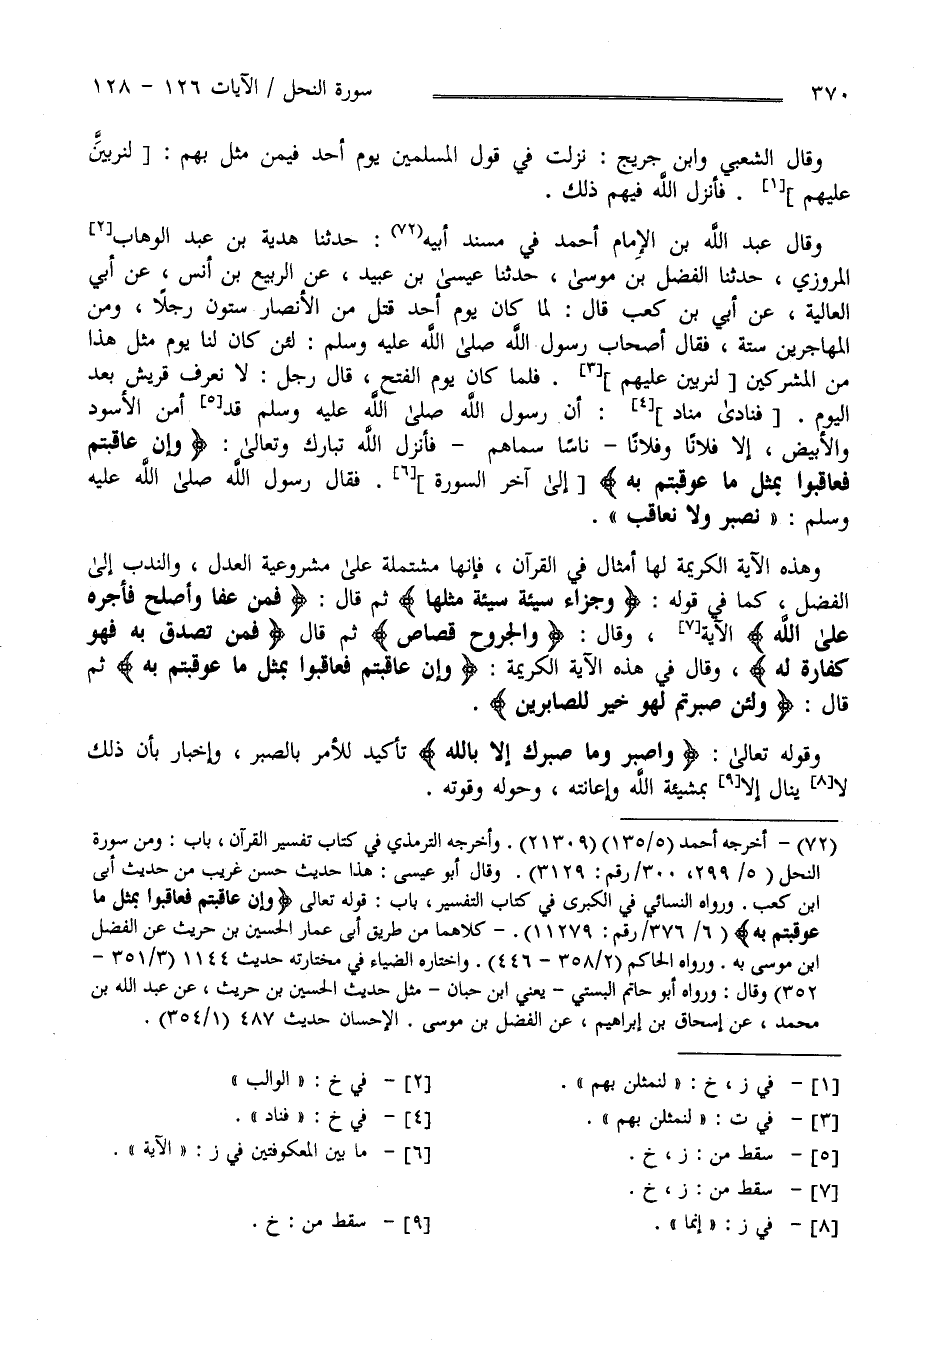 ٣٧٠ سورة النحل / الآيات ١٢٦ - ١٢٨
وقال الشعبي وابن جريج : نزلت في قول المسلمين يوم أحد فيمن مثل بهم : [ لنربينَّ
عليهم ][١] . فأنزل اللَّه فيهم ذلك .
وقال عبد اللَّه بن الإمام أحمد في مسند أبيه(٧٢) : حدثنا هدية بن عبد الوهاب[٢]
المروزي ، حدثنا الفضل بن موسىٰ ، حدثنا عيسىٰ بن عبيد ، عن الربيع بن أنس ، عن أبي
العالية ، عن أبي بن كعب قال : لما كان يوم أحد قتل من الأنصار ستون رجلًا ، ومن
المهاجرين ستة ، فقال أصحاب رسول اللَّه صلىٰ اللَّه عليه وسلم : لئن كان لنا يوم مثل هذا
من المشركين [ لنربين عليهم ][٣] . فلما كان يوم الفتح ، قال رجل : لا نعرف قريش بعد
اليوم . [ فنادىٰ مناد ][٤] : أن رسول اللَّه صلىٰ اللَّه عليه وسلم قد[٥] أمن الأسود
والأبيض ، إلا فلانًا وفلانًا - ناسًا سماهم - فأنزل اللَّه تبارك وتعالىٰ : ﴿ وإن عاقبتم
فعاقبوا بمثل ما عوقبتم به ﴾ [ إلىٰ آخر السورة ][٦] . فقال رسول اللَّه صلىٰ اللَّه عليه
وسلم : « نصبر ولا نعاقب » .
وهذه الآية الكريمة لها أمثال في القرآن ، فإنها مشتملة علىٰ مشروعية العدل ، والندب إلىٰ
الفضل ، كما في قوله : ﴿ وجزاء سيئة سيئة مثلها ﴾ ثم قال : ﴿ فمن عفا وأصلح فأجره
علىٰ اللَّه ﴾ الآية[٧] ، وقال : ﴿ والجروح قصاص ﴾ ثم قال ﴿ فمن تصدق به فهو
كفارة له ﴾ ، وقال في هذه الآية الكريمة : ﴿ وإن عاقبتم فعاقبوا بمثل ما عوقبتم به ﴾ ثم
قال : ﴿ ولئن صبرتم لهو خير للصابرين ﴾ .
وقوله تعالىٰ : ﴿ واصبر وما صبرك إلا بالله ﴾ تأكيد للأمر بالصبر ، وإخبار بأن ذلك
لا[٨] ينال إلا[٩] بمشيئة اللَّه وإعانته ، وحوله وقوته .
(٧٢) - أخرجه أحمد (١٣٥/٥) (٢١٣٠٩) . وأخرجه الترمذي في كتاب تفسير القرآن ، باب : ومن سورة
النحل ( ٥/ ٢٩٩، ٣٠٠/رقم : ٣١٢٩) . وقال أبو عيسى : هذا حديث حسن غريب من حديث أبى
ابن كعب . ورواه النسائي في الكبرى في كتاب التفسير ، باب : قوله تعالى ﴿وإن عاقبتم فعاقبوا بمثل ما
عوقبتم به﴾ ( ٦/ ٣٧٦/رقم : ١١٢٧٩) . - كلاهما من طريق أبى عمار الحسين بن حريث عن الفضل
ابن موسى به . ورواه الحاكم (٣٥٨/٢ - ٤٤٦) . واختاره الضياء في مختارته حديث ١١٤٤ (٣٥١/٣ -
٣٥٢) وقال : ورواه أبو حاتم البستي - يعني ابن حبان - مثل حديث الحسين بن حريث ، عن عبد الله بن
محمد ، عن إسحاق بن إبراهيم ، عن الفضل بن موسى . الإحسان حديث ٤٨٧ (٣٥٤/١) .
[١] - في ز ، خ : « لنمثلن بهم » . [٢] - في خ : « الوالب »
[٣] - في ت : « لنمثلن بهم » . [٤] - في خ : « فناد » .
[٥] - سقط من : ز ، خ . [٦] - ما بين المعكوفتين في ز : « الآية » .
[٧] - سقط من : ز ، خ .
[٨] - في ز : « إنما » . [٩] - سقط من : خ .